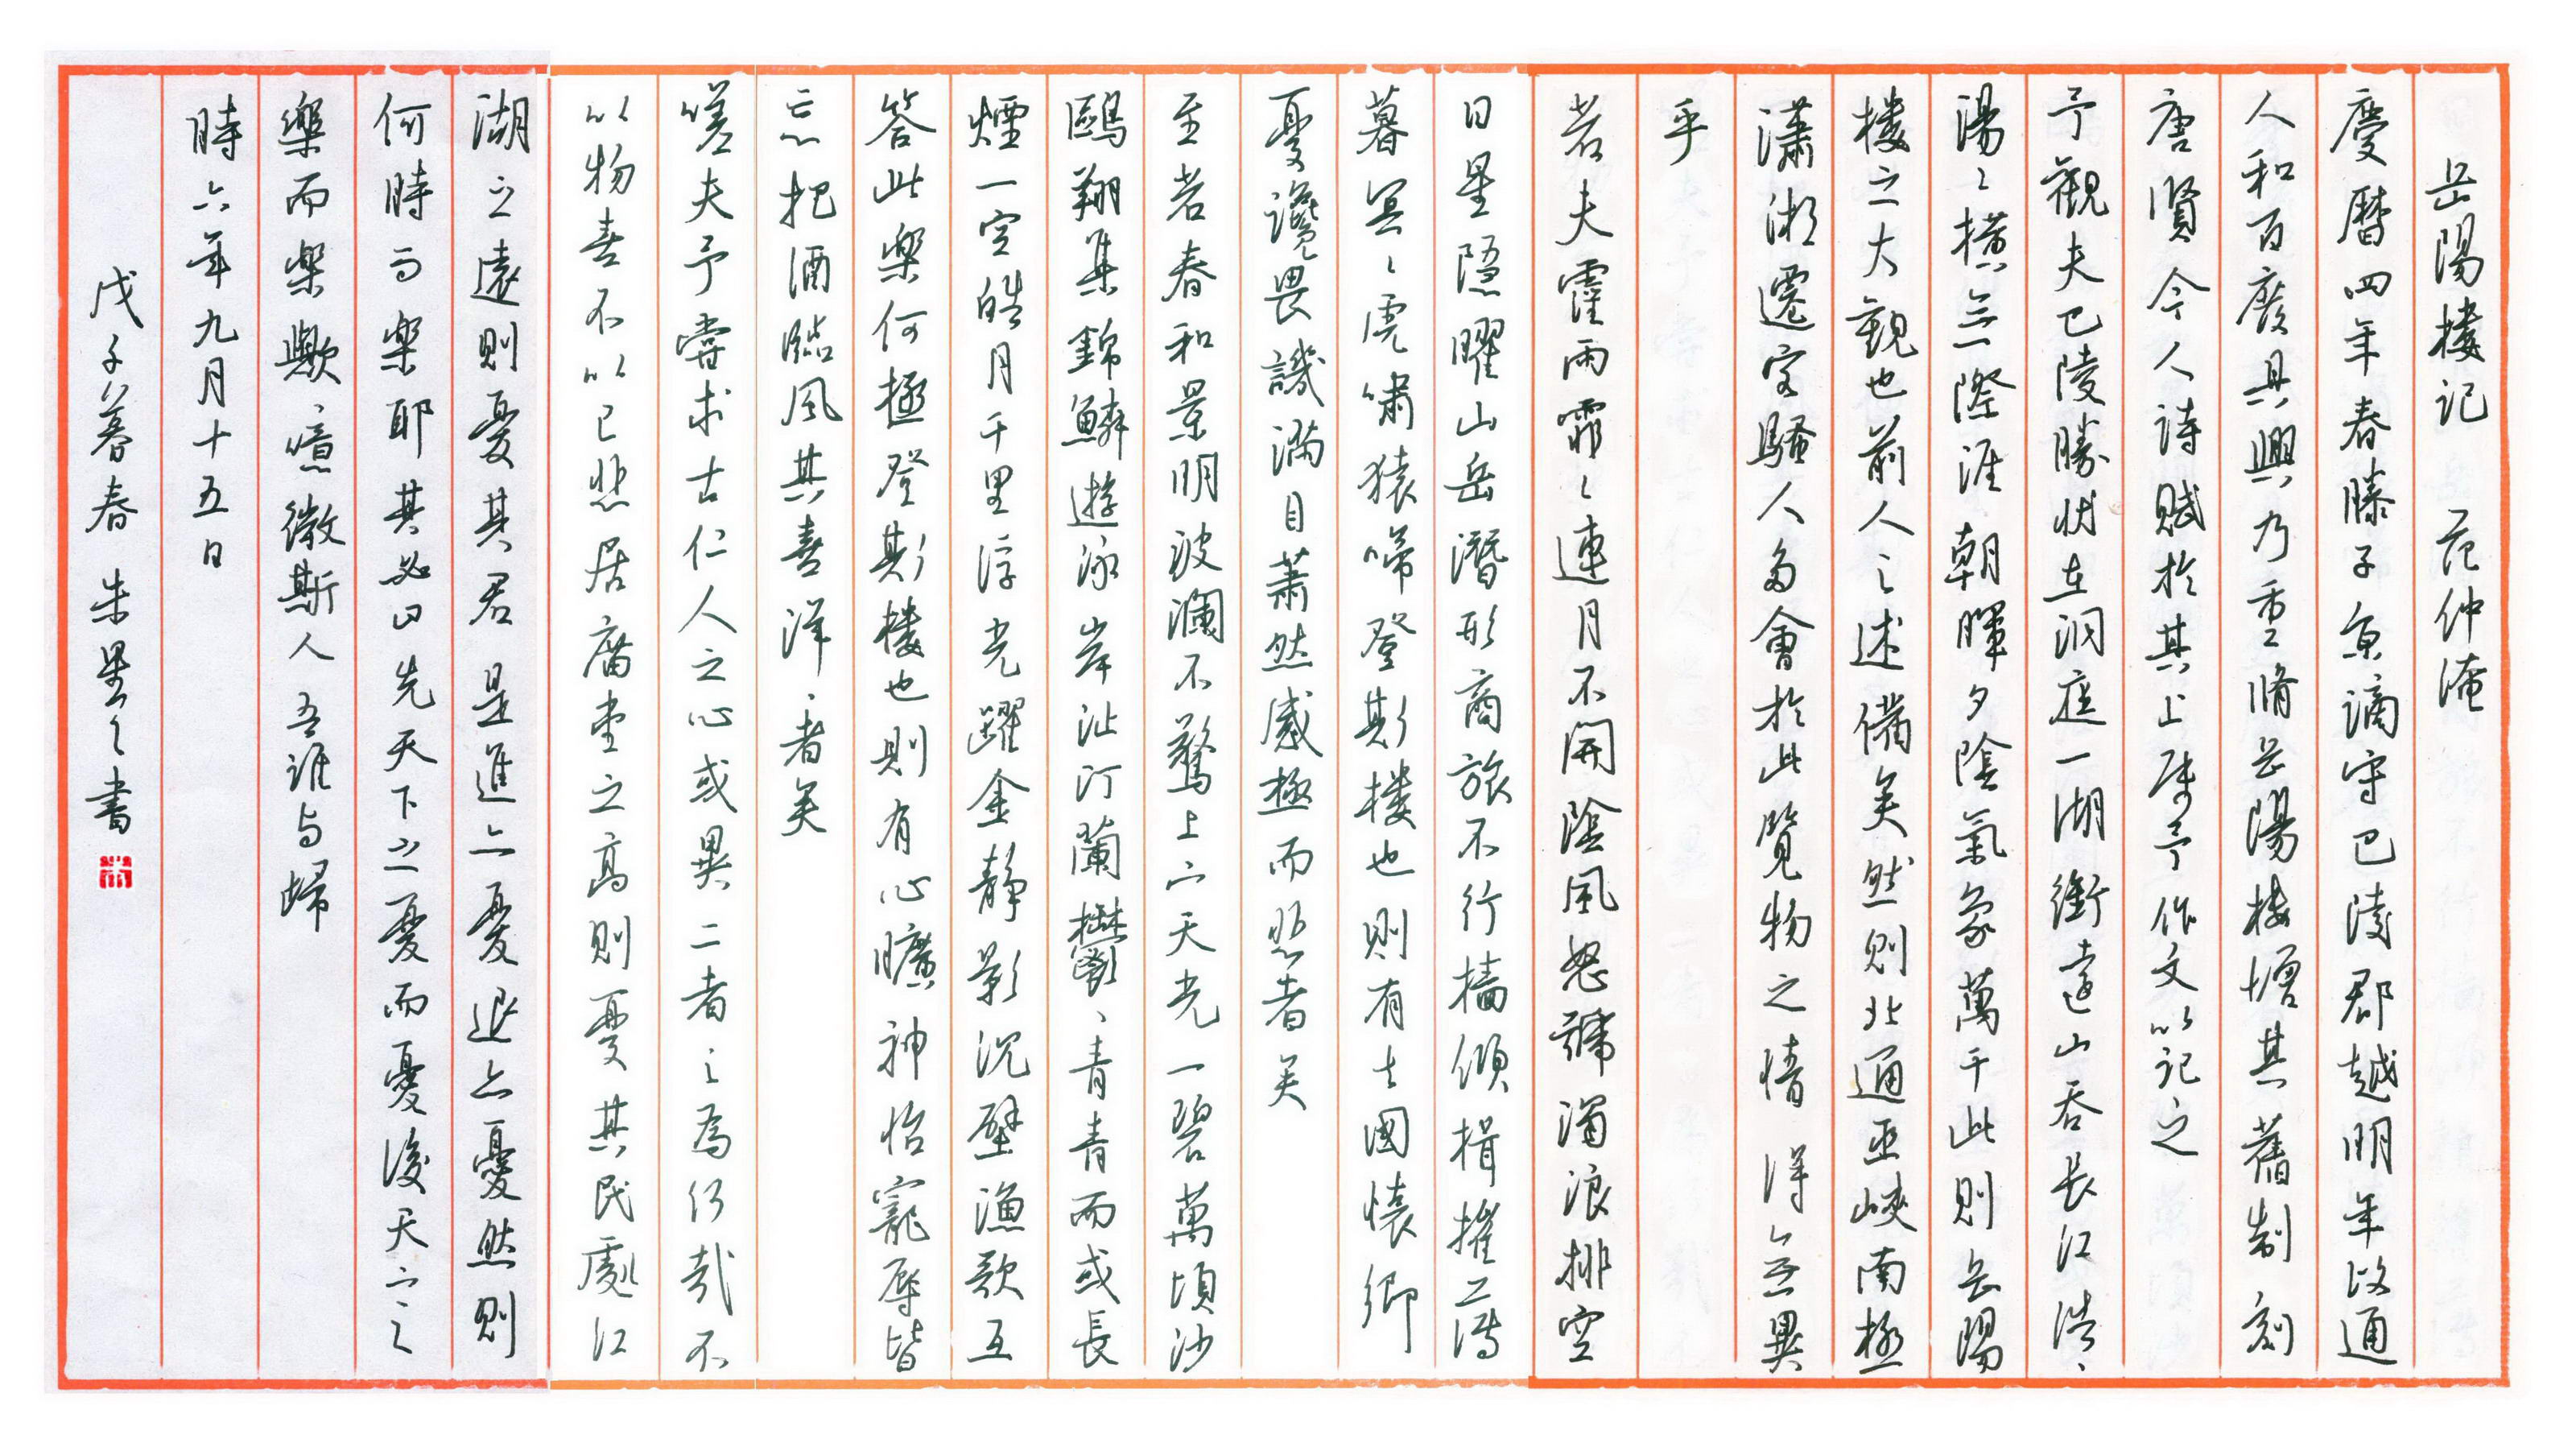 岳陽樓記 范仲淹
慶曆四年春滕子京謫守巴陵郡越明年政通
人和百廢具興乃重脩岳陽樓增其舊制刻
唐賢今人詩賦於其上屬予作文以記之
予觀夫巴陵勝狀在洞庭一湖銜遠山吞長江浩〻
湯〻橫無際涯朝暉夕陰氣象萬千此則岳陽
樓之大觀也前人之述備矣然則北通巫峽南極
瀟湘遷客騷人多會於此覽物之情得無異
乎
若夫霪雨霏〻連月不開陰風怒號濁浪排空
日星隱曜山岳潛形商旅不行檣傾楫摧薄
暮冥〻虎嘯猿啼登斯樓也則有去國懷鄉
憂讒畏譏滿目蕭然感極而悲者矣
至若春和景明波瀾不驚上下天光一碧萬頃沙
鷗翔集錦鱗遊泳岸沚汀蘭鬱〻青青而或長
煙一空皓月千里浮光躍金靜影沉璧漁歌互
答此樂何極登斯樓也則有心曠神怡寵辱皆
忘把酒臨風其喜洋〻者矣
嗟夫予嘗求古仁人之心或異二者之為何哉不
以物喜不以己悲居廟堂之高則憂其民處江
湖之遠則憂其君是進亦憂退亦憂然則
何時而樂耶其必曰先天下之憂而憂後天下之
樂而樂歟噫微斯人吾誰与歸
時六年九月十五日
戊子暮春 朱墨之書